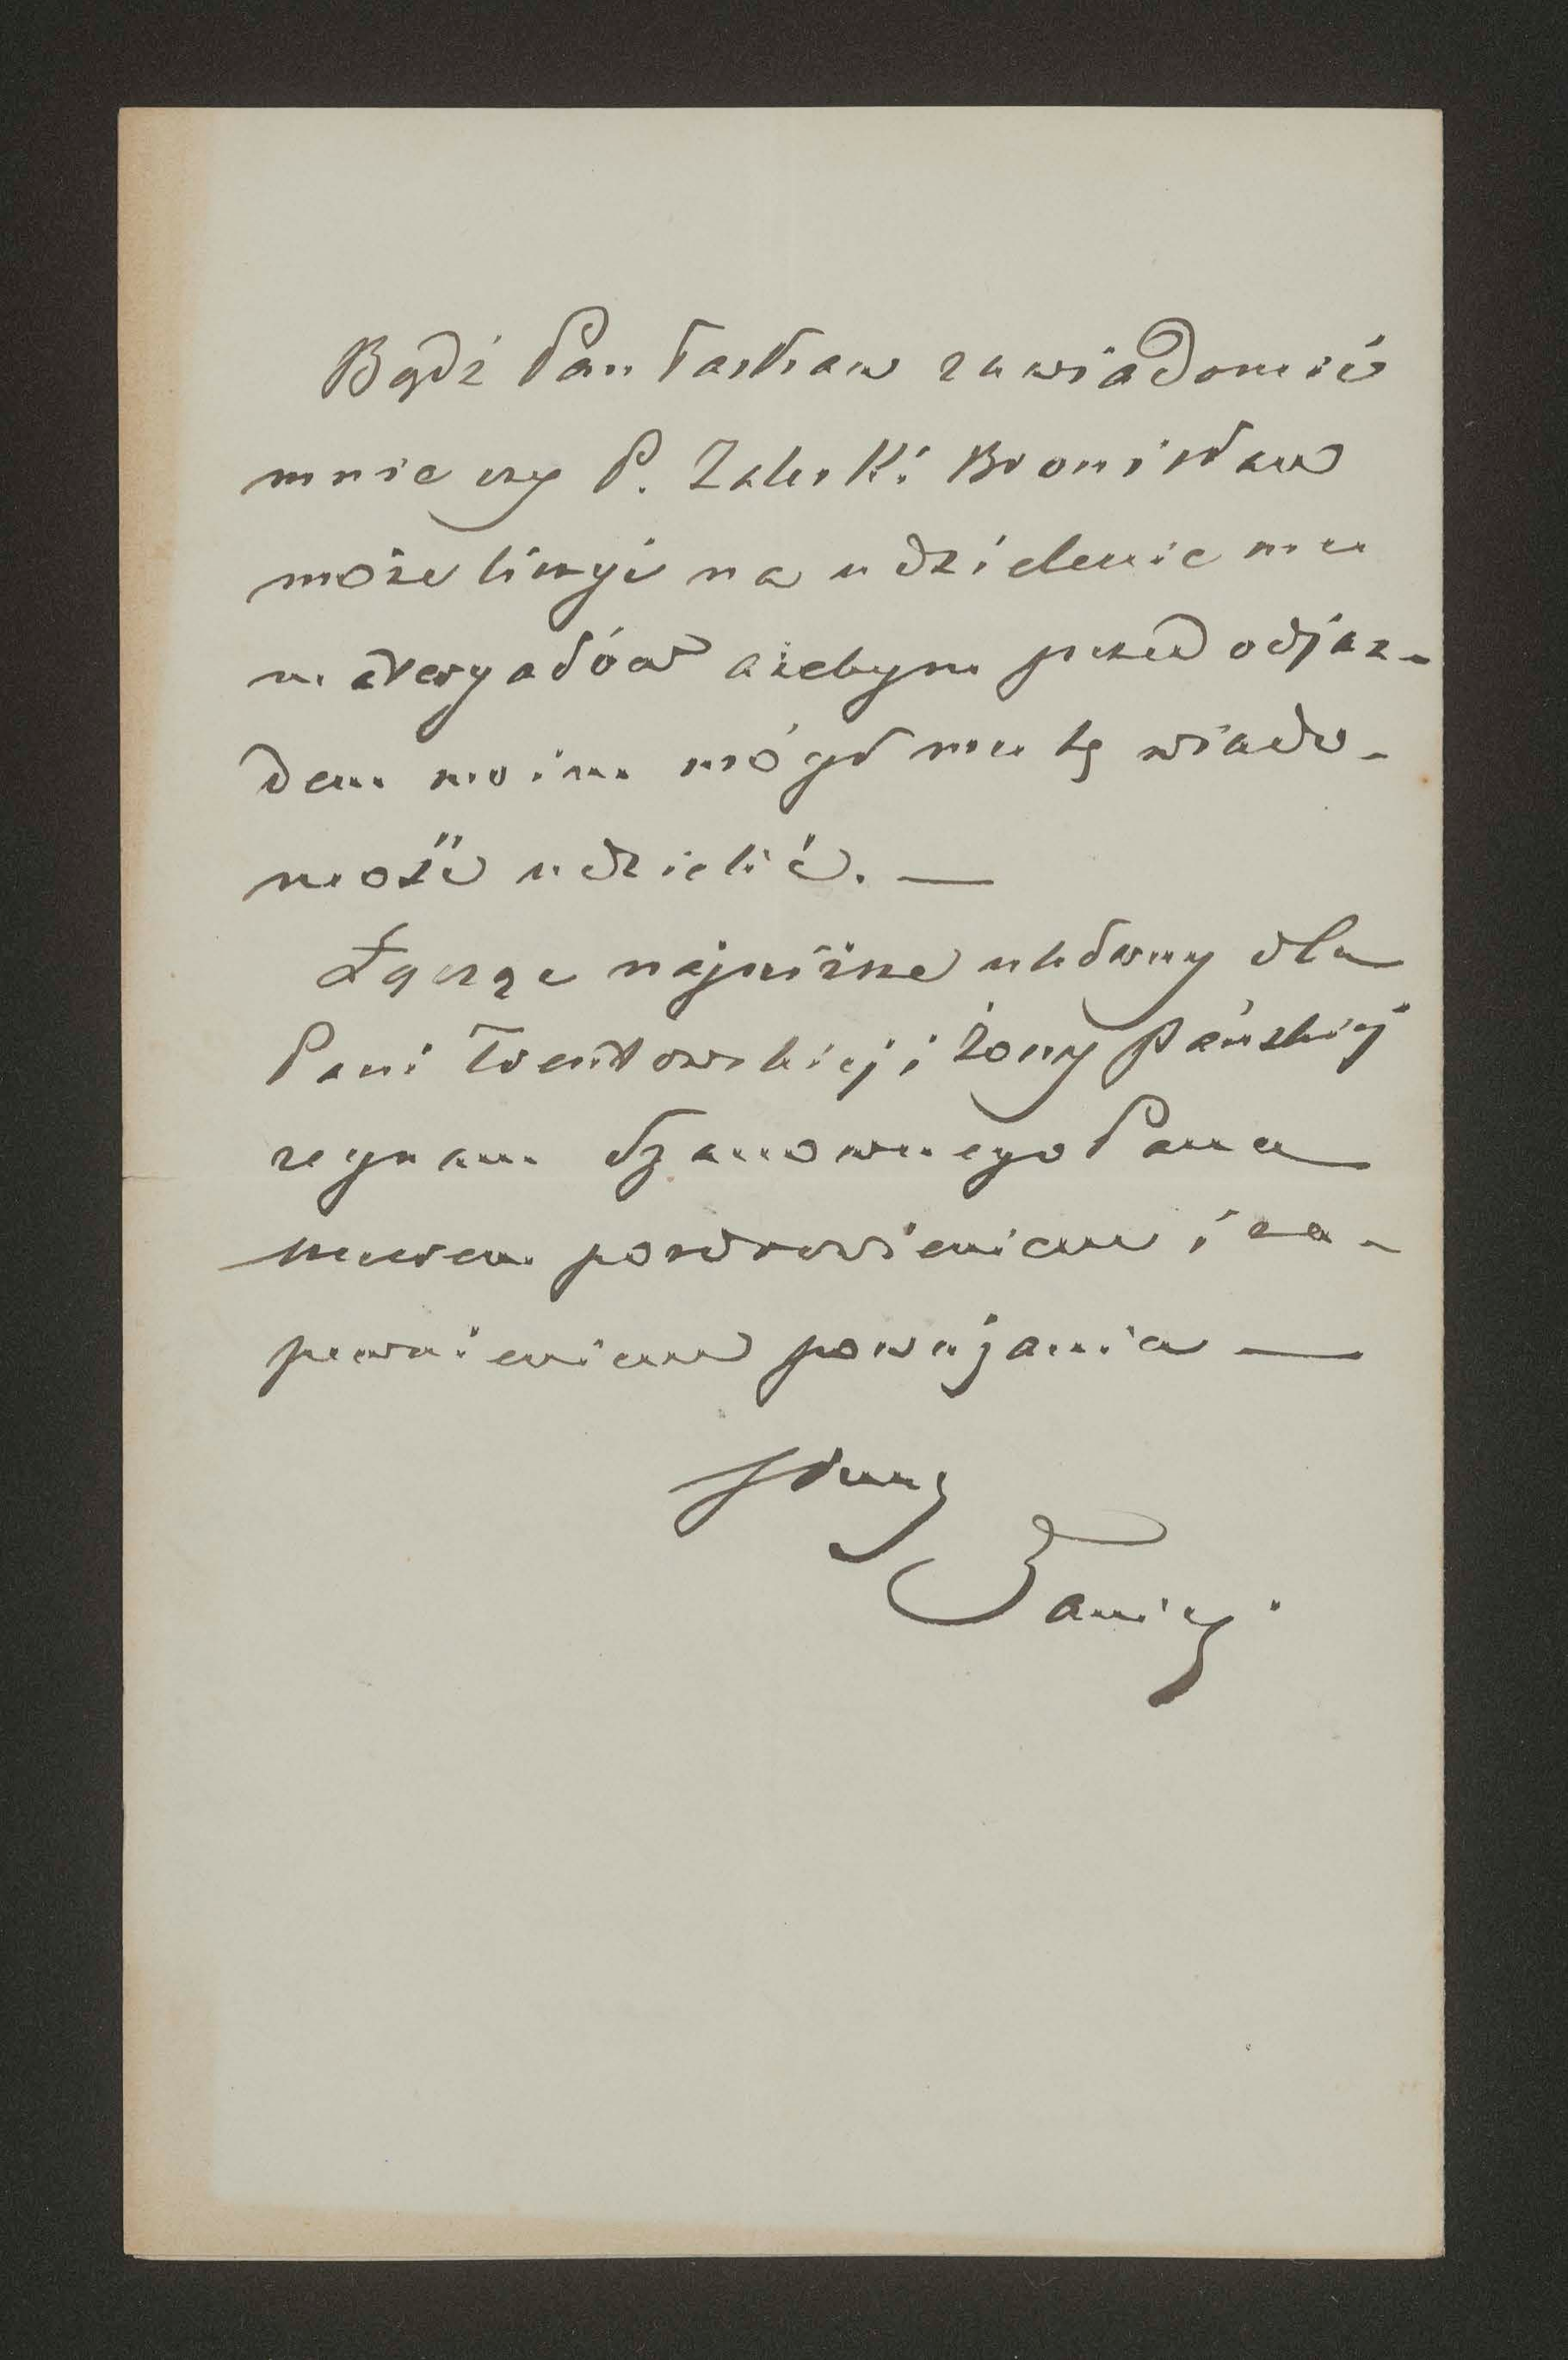 Bądź Pan łaskaw zawiadomić
mnie czy P. Zaleski Bronisław
może liczyć na udzielenie mu
materyałów ażebym przed odjaz-
dem moim mógł mu tę wiado-
mość udzielić. —
Łączę najniższe ukłony dla
Pani Trentowskiej i żony Pańskiej
żegnam Szanownego Pana
pozdrowieniem i za-
pewnieniem poważania —
sługa